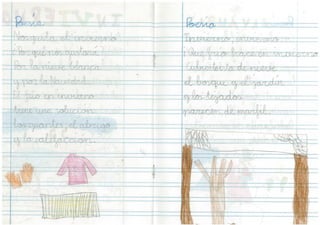 Poesía
Nos gusta el invierno
¿Por qué nos gustará?
Por la nieve blanca
y por la Navidad.
El frío en invierno
tiene una solución
los guantes, el abrigo
y la calefacción.
Poesía
Invierno, invierno
¡Qué frío hace en invierno!
Cubierto de nieve
el bosque y el jardín
y los tejados
parecen de marfil.